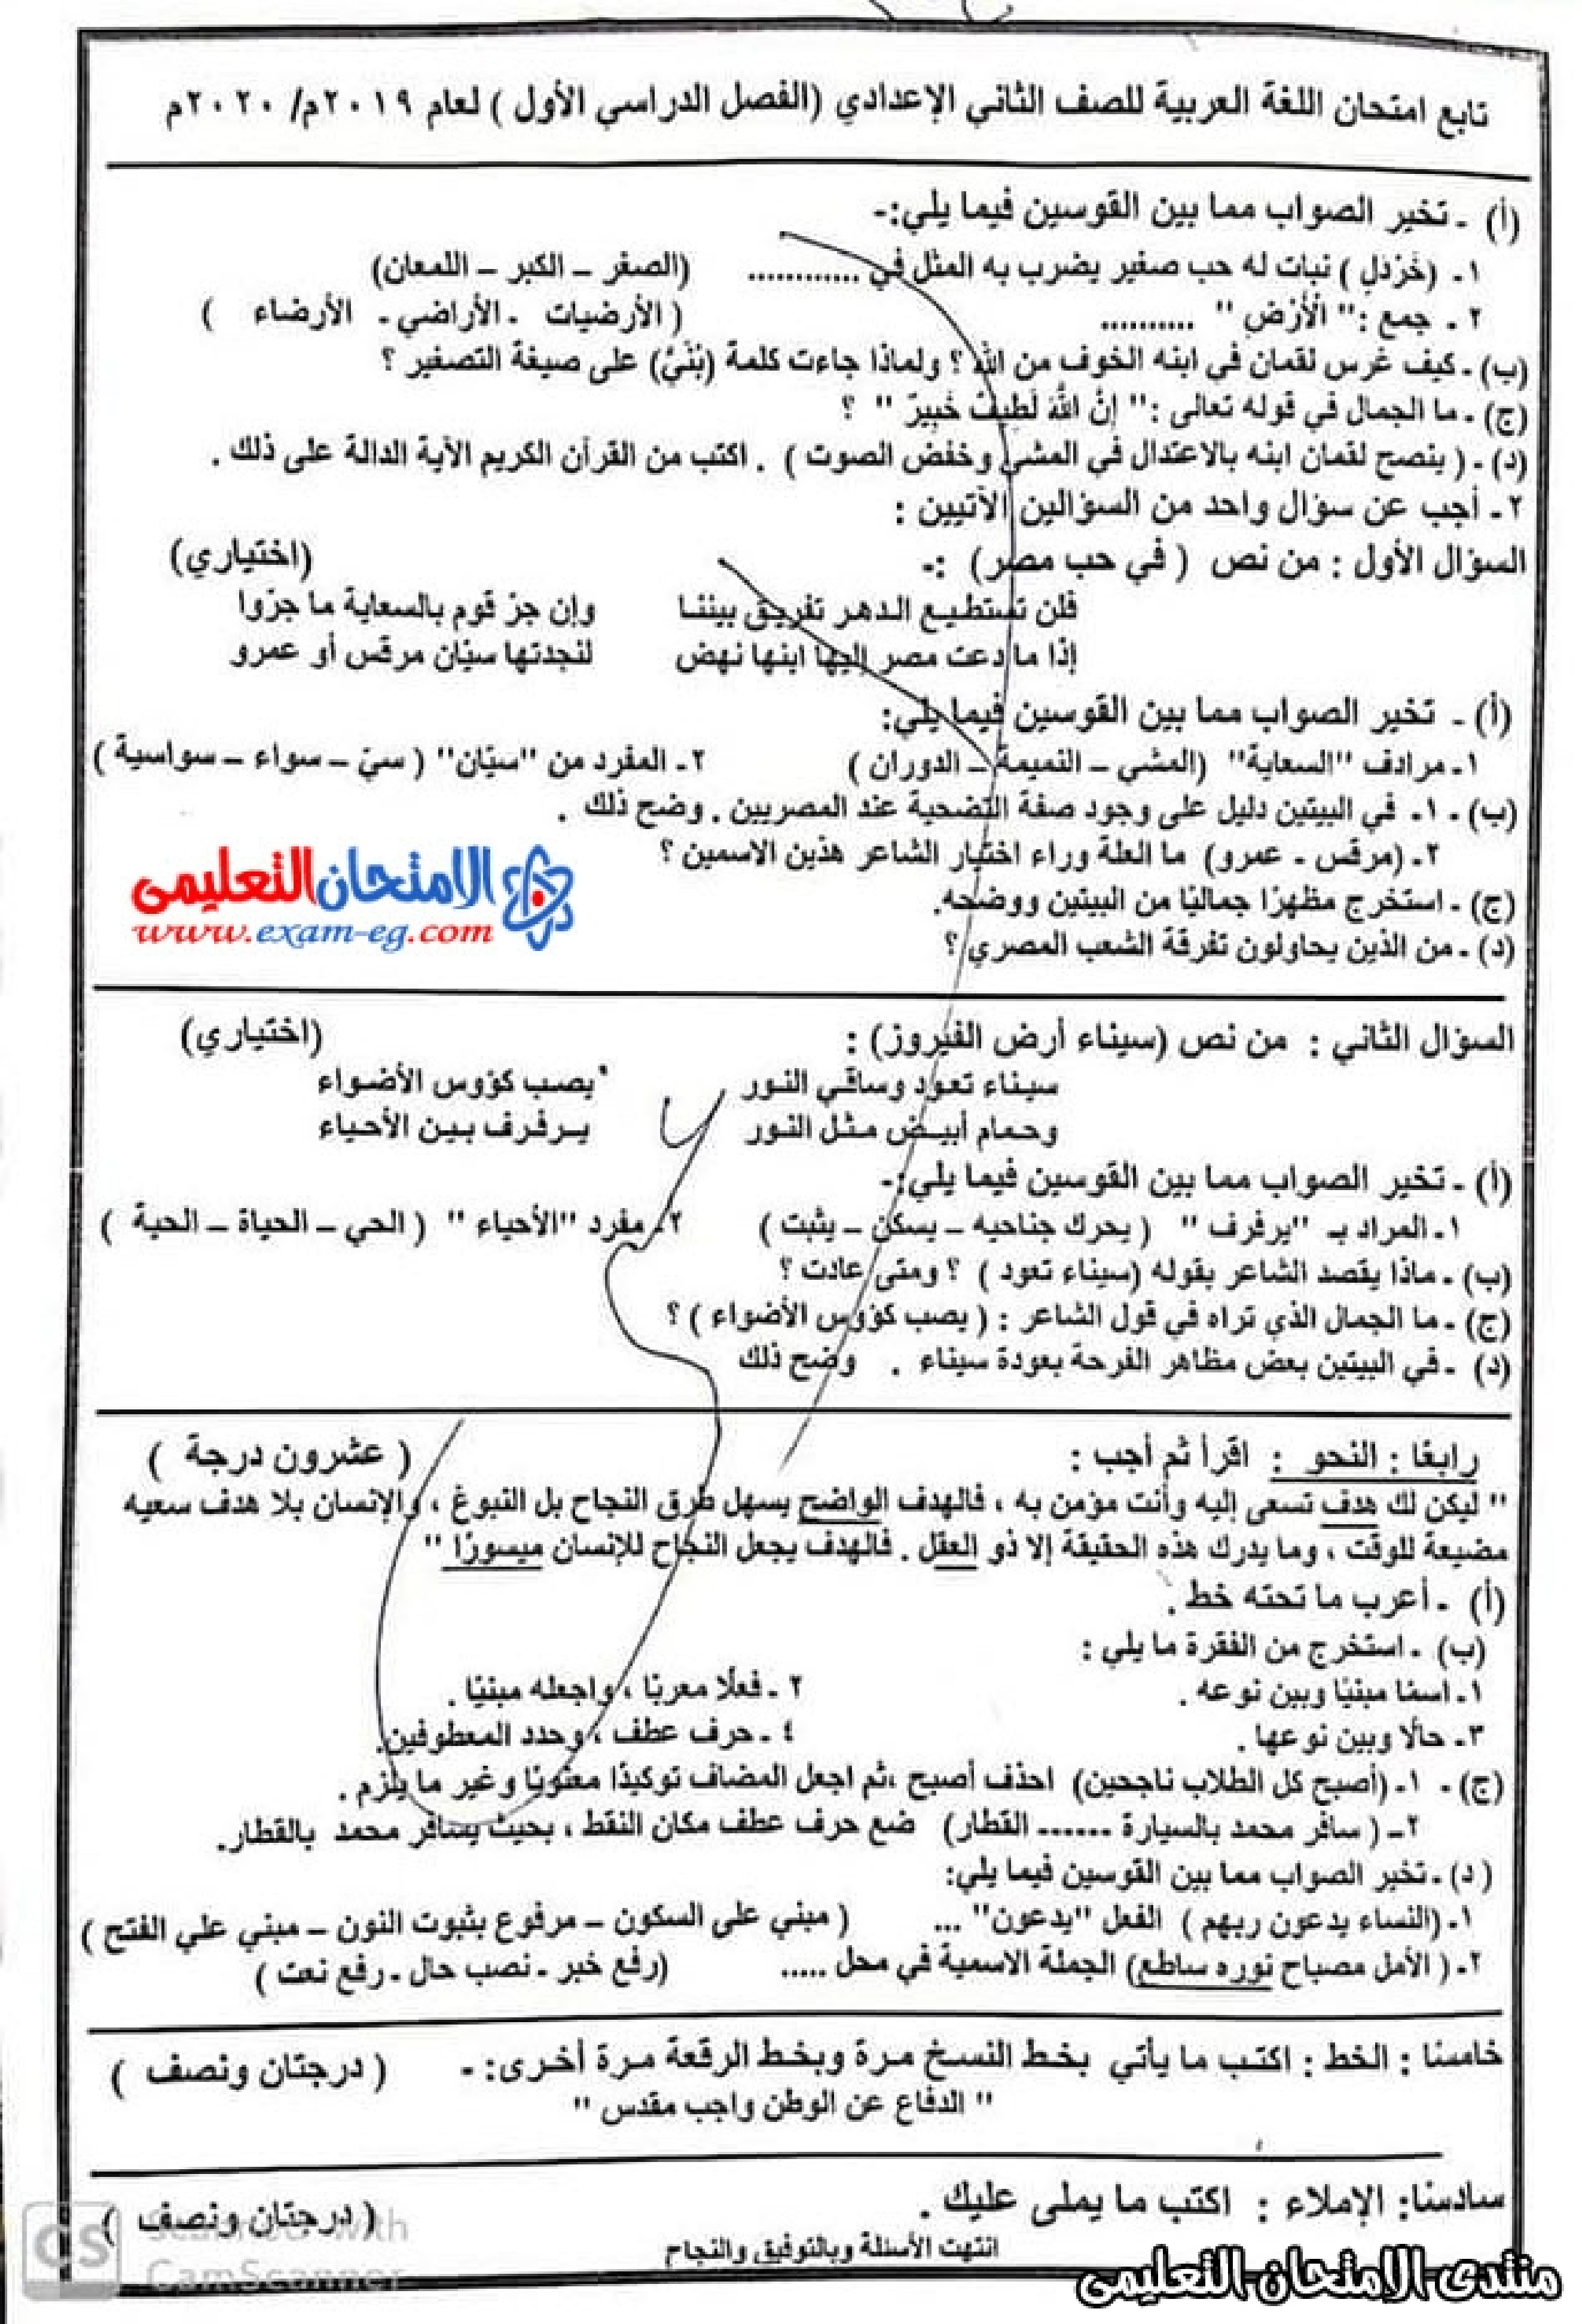 تابع امتحان اللغة العربية للصف الثاني الإعدادي (الفصل الدراسي الأول) لعام ٢٠١٩م/ ٢٠٢٠م
(أ) - تخير الصواب مما بين القوسين فيما يلي:-
١- (خَرْدَلٍ) نبات له حب صغير يضرب به المثل في ............ (الصغر – الكبر – اللمعان)
٢ - جمع :" الْأَرْضِ " .......... ( الأرضيات - الأراضي - الأرضاء )
(ب) - كيف غرس لقمان في ابنه الخوف من الله ؟ ولماذا جاءت كلمة (بُنَيَّ) على صيغة التصغير ؟
(ج) - ما الجمال في قوله تعالى :" إِنَّ اللَّهَ لَطِيفٌ خَبِيرٌ " ؟
(د) - ( ينصح لقمان ابنه بالاعتدال في المشي وخفض الصوت ) . اكتب من القرآن الكريم الآية الدالة على ذلك .
٢ - أجب عن سؤال واحد من السؤالين الآتيين :
السؤال الأول : من نص ( في حب مصر) :- (اختياري)
فلن تستطيع الدهر تفريق بيننا وإن جرّ قوم بالسعاية ما جرّوا
إذا ما دعت مصر إليها ابنها نهض لنجدتها سيّان مرقس أو عمرو
(أ) - تخير الصواب مما بين القوسين فيما يلي:
١- مرادف "السعاية" (المشي – النميمة – الدوران ) ٢- المفرد من "سيّان" ( سيّ – سواء – سواسية )
(ب) - ١- في البيتين دليل على وجود صفة التضحية عند المصريين . وضح ذلك .
٢- (مرقس - عمرو) ما العلة وراء اختيار الشاعر هذين الاسمين ؟
(ج) - استخرج مظهرًا جماليًا من البيتين ووضحه.
(د) - من الذين يحاولون تفرقة الشعب المصري ؟
الامتحان التعليمى
www.exam-eg.com
السؤال الثاني : من نص (سيناء أرض الفيروز) : (اختياري)
سيناء تعود وساقي النور يصب كؤوس الأضواء
وحمام أبيض مثل النور يرفرف بين الأحياء
(أ) - تخير الصواب مما بين القوسين فيما يلي:-
١- المراد بـ "يرفرف" ( يحرك جناحيه – يسكن – يثبت ) ٢- مفرد "الأحياء " ( الحي – الحياة – الحية )
(ب) - ماذا يقصد الشاعر بقوله (سيناء تعود ) ؟ ومتى عادت ؟
(ج) - ما الجمال الذي تراه في قول الشاعر : ( يصب كؤوس الأضواء ) ؟
(د) - في البيتين بعض مظاهر الفرحة بعودة سيناء . وضح ذلك
رابعًا : النحو : اقرأ ثم أجب : ( عشرون درجة )
" ليكن لك هدف تسعى إليه وأنت مؤمن به ، فالهدف الواضح يسهل طرق النجاح بل النبوغ ، والإنسان بلا هدف سعيه
مضيعة للوقت ، وما يدرك هذه الحقيقة إلا ذو العقل . فالهدف يجعل النجاح للإنسان ميسورًا "
(أ) - أعرب ما تحته خط .
(ب) - استخرج من الفقرة ما يلي :
١- اسمًا مبنيًا وبين نوعه . ٢ - فعلًا معربًا ، واجعله مبنيًا .
٣- حالًا وبين نوعها . ٤ - حرف عطف ، وحدد المعطوفين.
(ج) - ١- (أصبح كل الطلاب ناجحين) احذف أصبح ،ثم اجعل المضاف توكيدًا معنويًا وغير ما يلزم .
٢- ( سافر محمد بالسيارة ....... القطار) ضع حرف عطف مكان النقط ، بحيث يسافر محمد بالقطار.
( د) - تخير الصواب مما بين القوسين فيما يلي:
١- (النساء يدعون ربهم ) الفعل "يدعون" ... ( مبني على السكون – مرفوع بثبوت النون – مبني علي الفتح )
٢- ( الأمل مصباح نوره ساطع) الجملة الاسمية في محل ..... (رفع خبر - نصب حال - رفع نعت )
خامسًا : الخط : اكتب ما يأتي بخط النسخ مرة وبخط الرقعة مرة أخرى: - ( درجتان ونصف )
" الدفاع عن الوطن واجب مقدس "
سادسًا: الإملاء : اكتب ما يملى عليك . ( درجتان ونصف )
انتهت الأسئلة وبالتوفيق والنجاح
CS Scanned with
CamScanner
منتدى الامتحان التعليمى